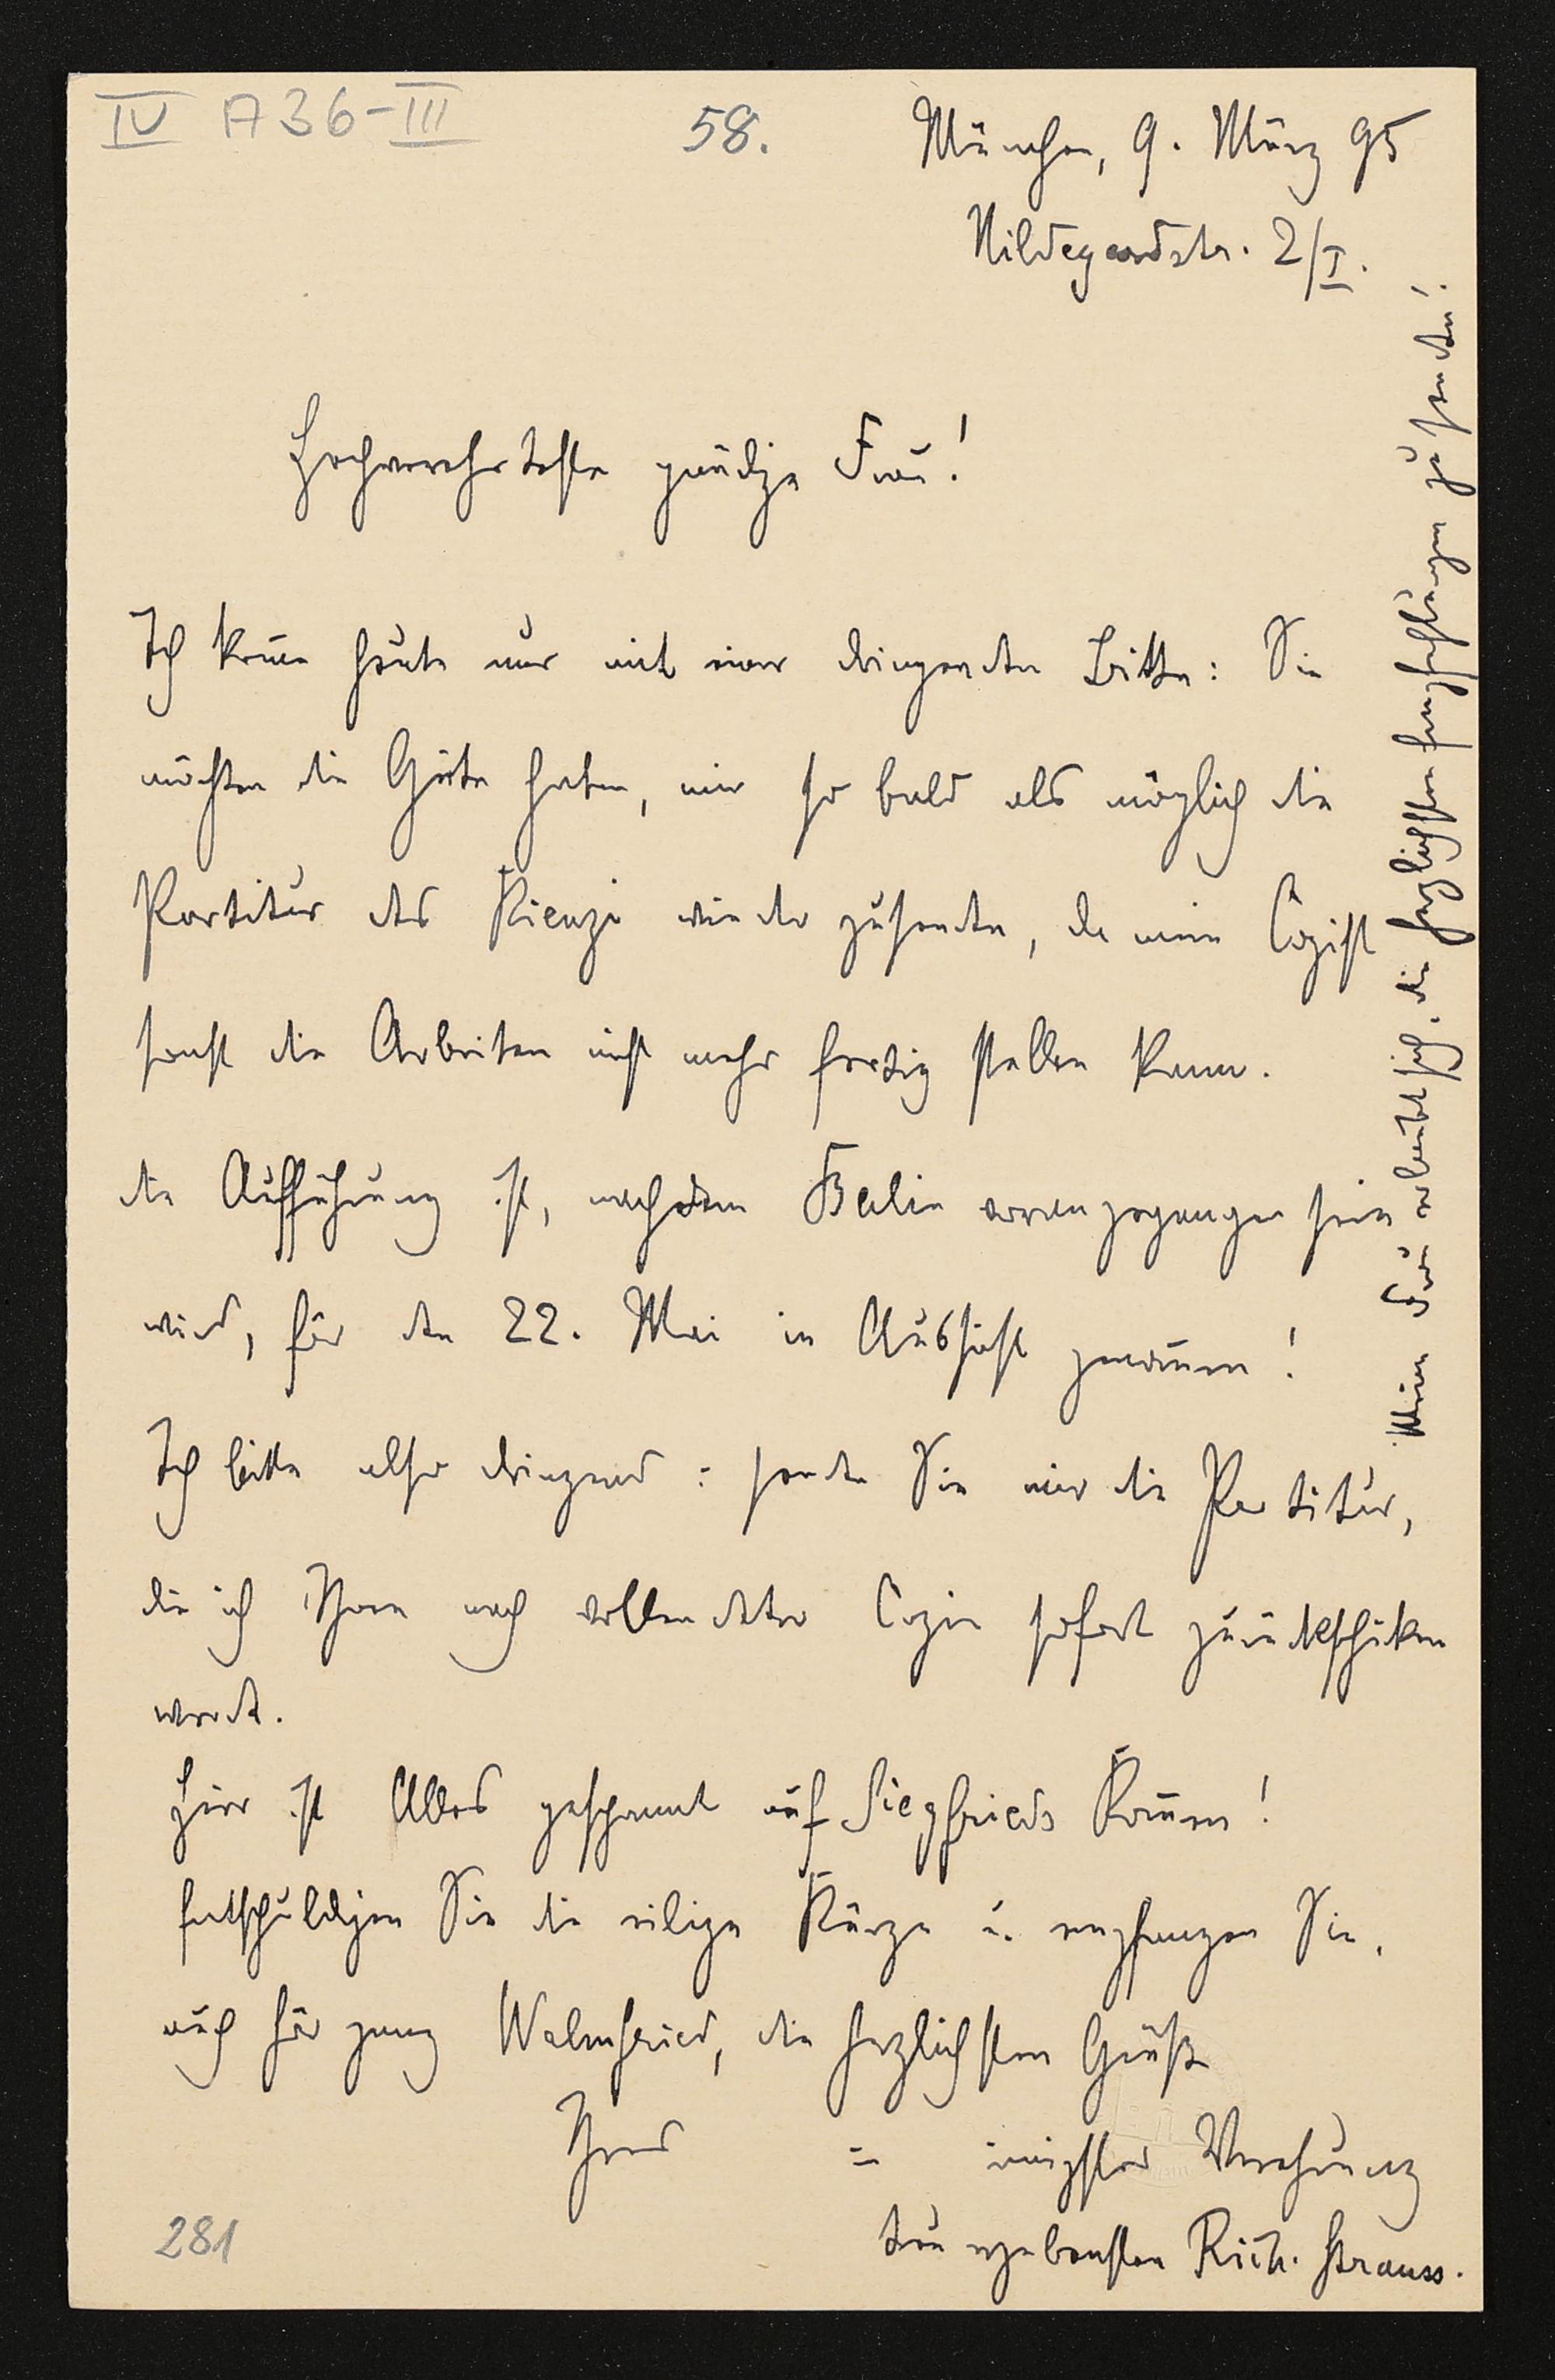 IV A 36-III
58.
München, 9. März 95
Hildegardstr. 2/I.
Hochverehrteste gnädige Frau!
Ich kom̄e heute nur mit einer dringenden Bitte: Sie
möchten die Güte haben, mir so bald als möglich die
Partitur des Rienzi wieder zusenden, da mein Copist
sonst die Arbeiten nicht mehr fertig stellen kann.
die Aufführung ist, nachdem Berlin vorangegangen sein
wird, für den 22. Mai in Aussicht genom̄en!
Ich bitte also dringend: senden Sie mir die Partitur,
die ich Ihnen nach vollendeter Copie sofort zurückschicken
werde.
Hier ist Alles gespannt auf Siegfrieds Kom̄en!
Entschuldigen Sie die eilige Kürze u. empfangen Sie,
auch für ganz Wahnfried, die herzlichsten Grüße
Ihres in innigster Verehrung
treu ergebensten Rich. Strauss.
Meine Frau erlaubt sich, die herzlichsten Empfehlungen zu senden!
281